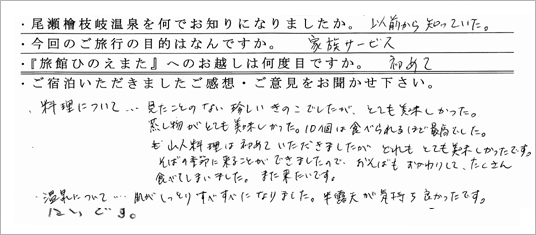 ・尾瀬檜枝岐温泉を何でお知りになりましたか。 以前から知っていた。
・今回のご旅行の目的はなんですか。 家族サービス
・『旅館ひのえまた』へのお越しは何度目ですか。 初めて
・ご宿泊いただきましたご感想・ご意見をお聞かせ下さい。
・料理について… 見たことのない珍しいきのこでしたが、とても美味しかった。
蒸し物がとても美味しかった。10個は食べられるほど最高でした。
山人料理は初めていただきましたが どれもとても美味しかったです。
そばの季節に来ることができましたので、おそばもおかわりして、たくさん
食べてしまいました。また来たいです。
・温泉について… 肌がしっとりすべすべになりました。半露天が気持ち良かったです。